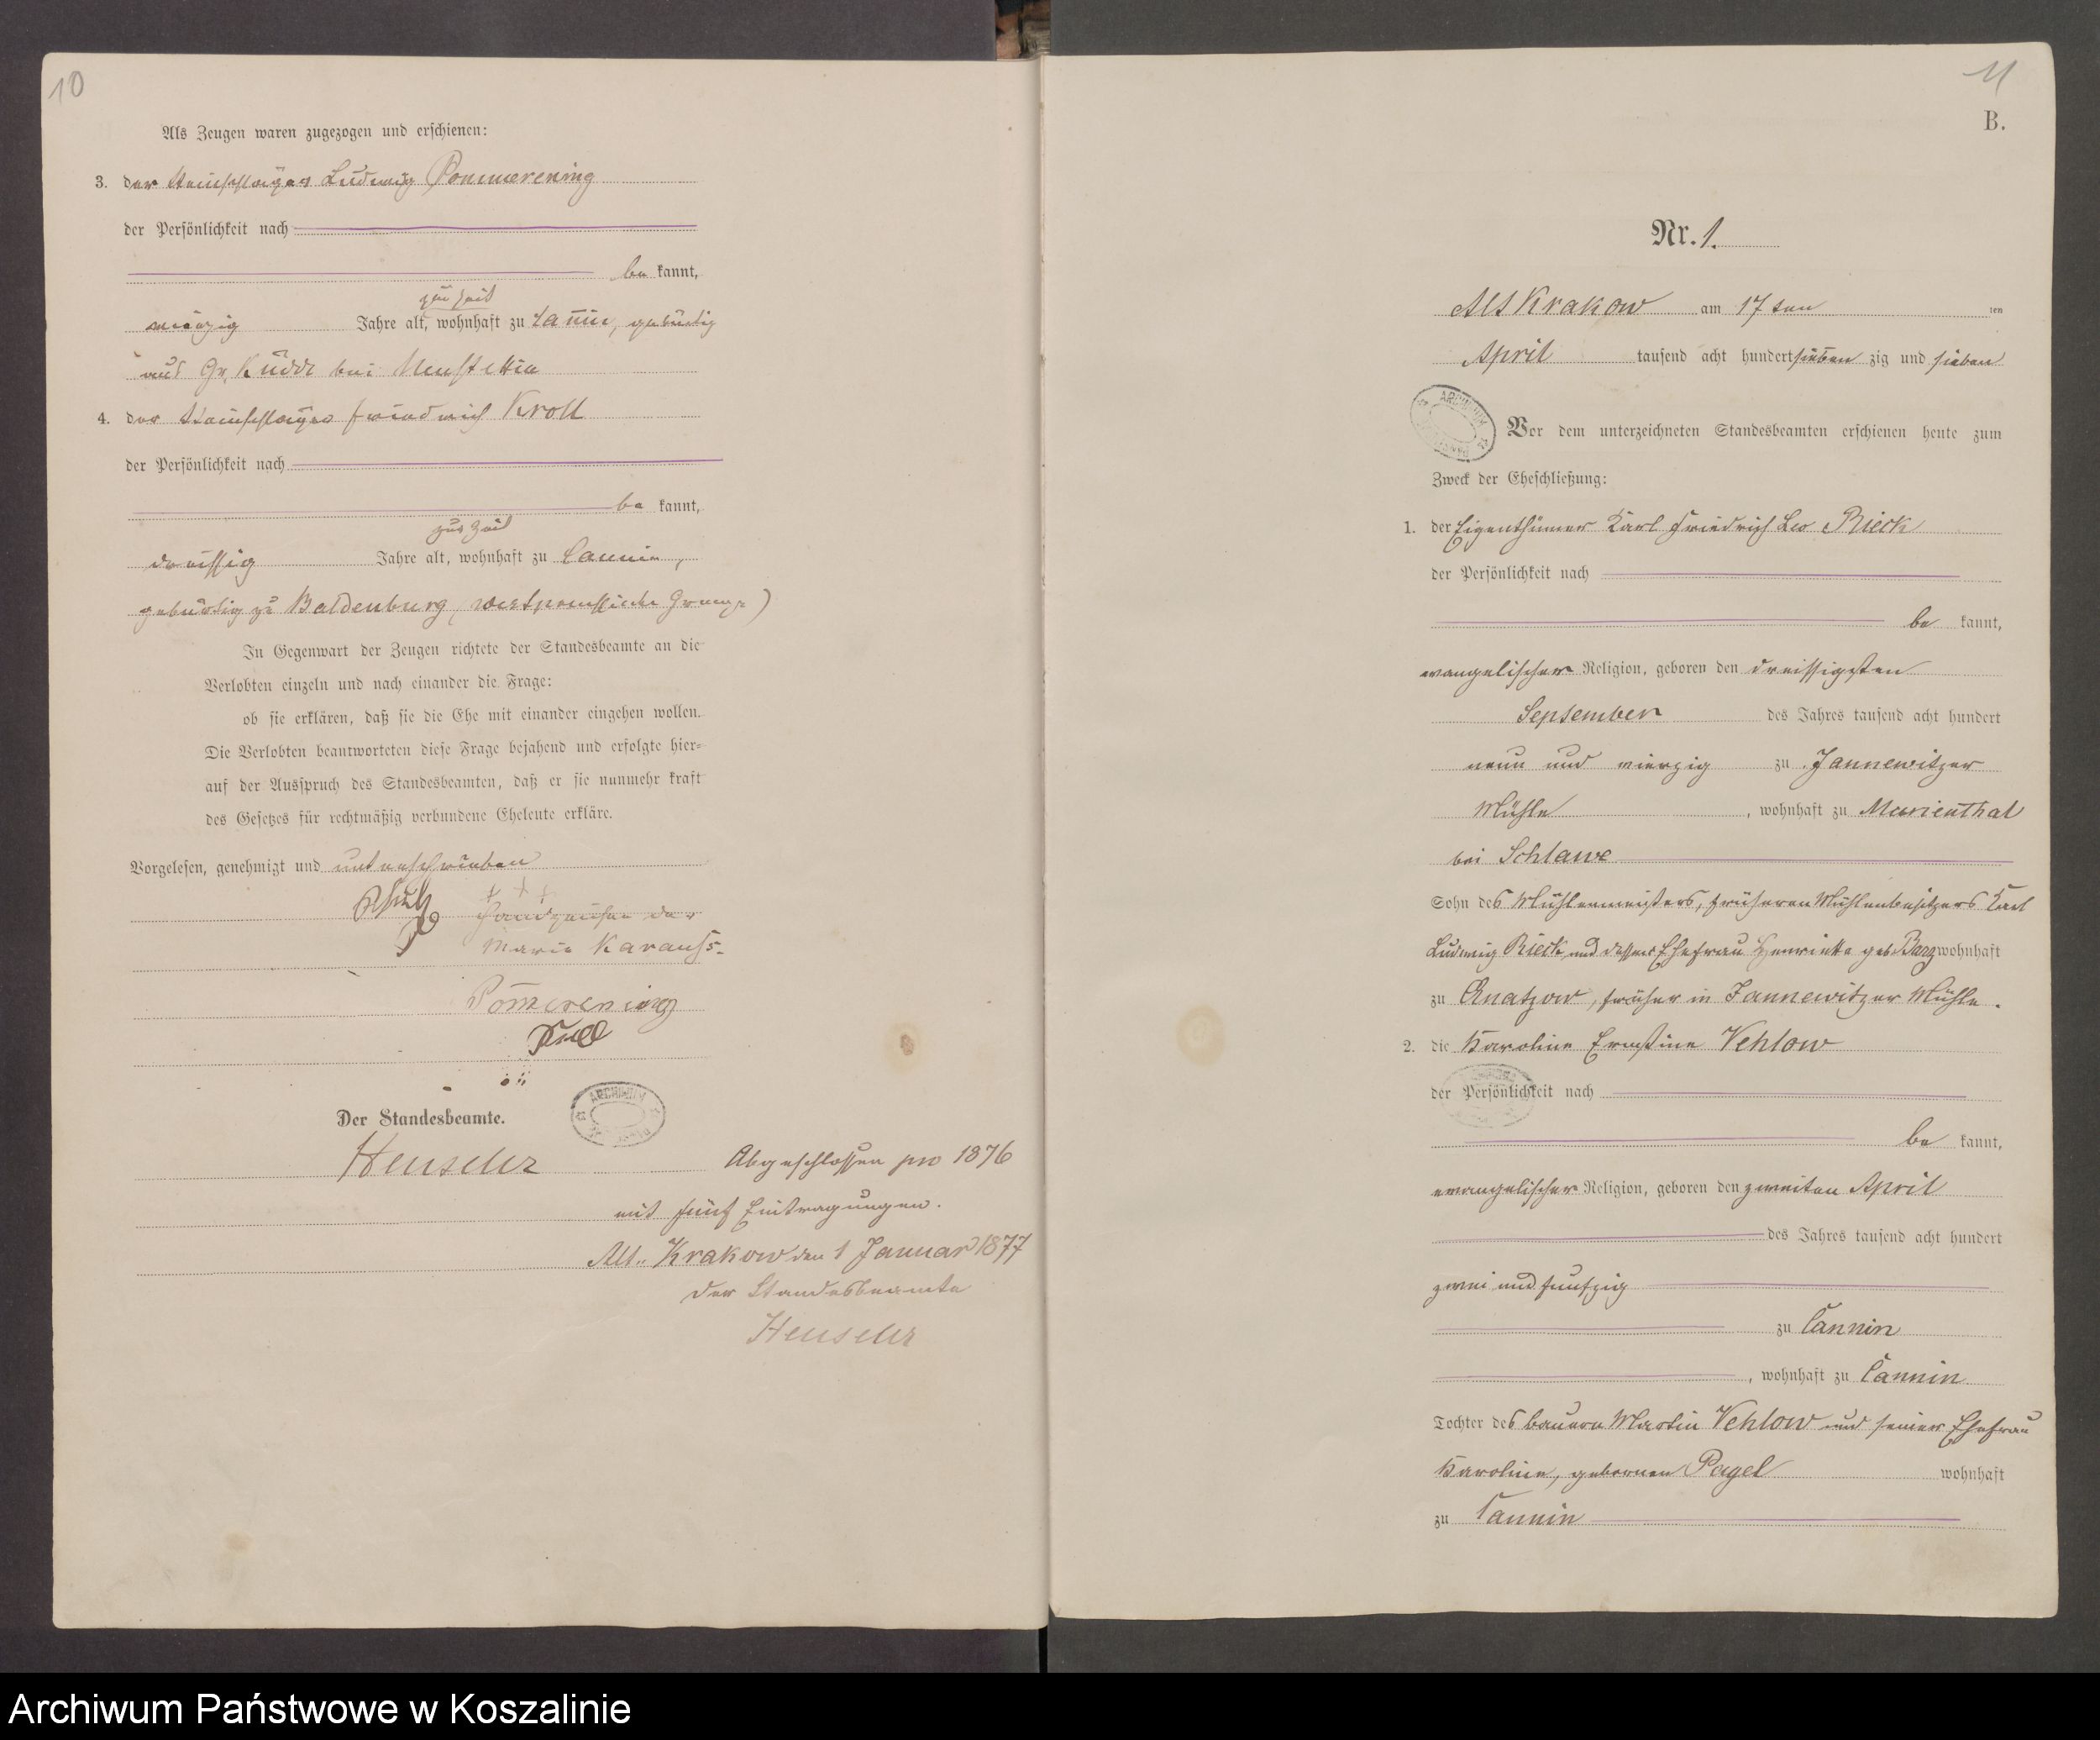 10
Als Zeugen waren zugezogen und erschienen:
3. der Steinschläger Ludwig Pommerening
der Persönlichkeit nach
be kannt,
zur Zeit
vierzig Jahre alt, wohnhaft zu Cannin, gebürtig
aus Gr. Küdde bei Neustettin
4. der Steinschläger Friedrich Kroll
der Persönlichkeit nach
be kannt,
zur Zeit
dreissig Jahre alt, wohnhaft zu Cannin,
gebürtig zu Baldenburg (westpreussische Grenze)
In Gegenwart der Zeugen richtete der Standesbeamte an die
Verlobten einzeln und nach einander die Frage:
ob sie erklären, daß sie die Ehe mit einander eingehen wollen.
Die Verlobten beantworteten diese Frage bejahend und erfolgte hier-
auf der Ausspruch des Standesbeamten, daß er sie nunmehr kraft
des Gesetzes für rechtmäßig verbundene Eheleute erkläre.
Vorgelesen, genehmigt und unterschrieben
+ + +
Handzeichen der
Maria Karauss.
Pom̄erening
Kroll
Der Standesbeamte.
ARCHIWUM
Abgeschlossen pro 1876
mit fünf Eintragungen.
Alt-Krakow den 1 Januar 1877
der Standesbeamte
11
B.
Nr. 1.
Alt Krakow am 17 ten ten
April tausend acht hundert sieben zig und sieben
ARCHIWUM
Vor dem unterzeichneten Standesbeamten erschienen heute zum
Zweck der Eheschließung:
1. der Eigenthümer Karl Friedrich Leo Rieck
der Persönlichkeit nach
be kannt,
evangelischer Religion, geboren den dreissigsten
September des Jahres tausend acht hundert
neun und vierzig zu Jannewitzer
Mühle, wohnhaft zu Marienthal
bei Schlawe
Sohn des Mühlenmeisters, früheren Mühlenbesitzers Karl
Ludwig Rieck und dessen Ehefrau Henriette geb. Barz wohnhaft
zu Quatzow, früher in Jannewitzer Mühle.
2. die Karoline Ernstine Vehlow
der Persönlichkeit nach
be kannt,
evangelischer Religion, geboren den zweiten April
des Jahres tausend acht hundert
zwei und funfzig
zu Cannin
, wohnhaft zu Cannin
Tochter des bauern Martin Vehlow und seiner Ehefrau
Karoline, gebornen Pagel wohnhaft
zu Cannin
Archiwum Państwowe w Koszalinie